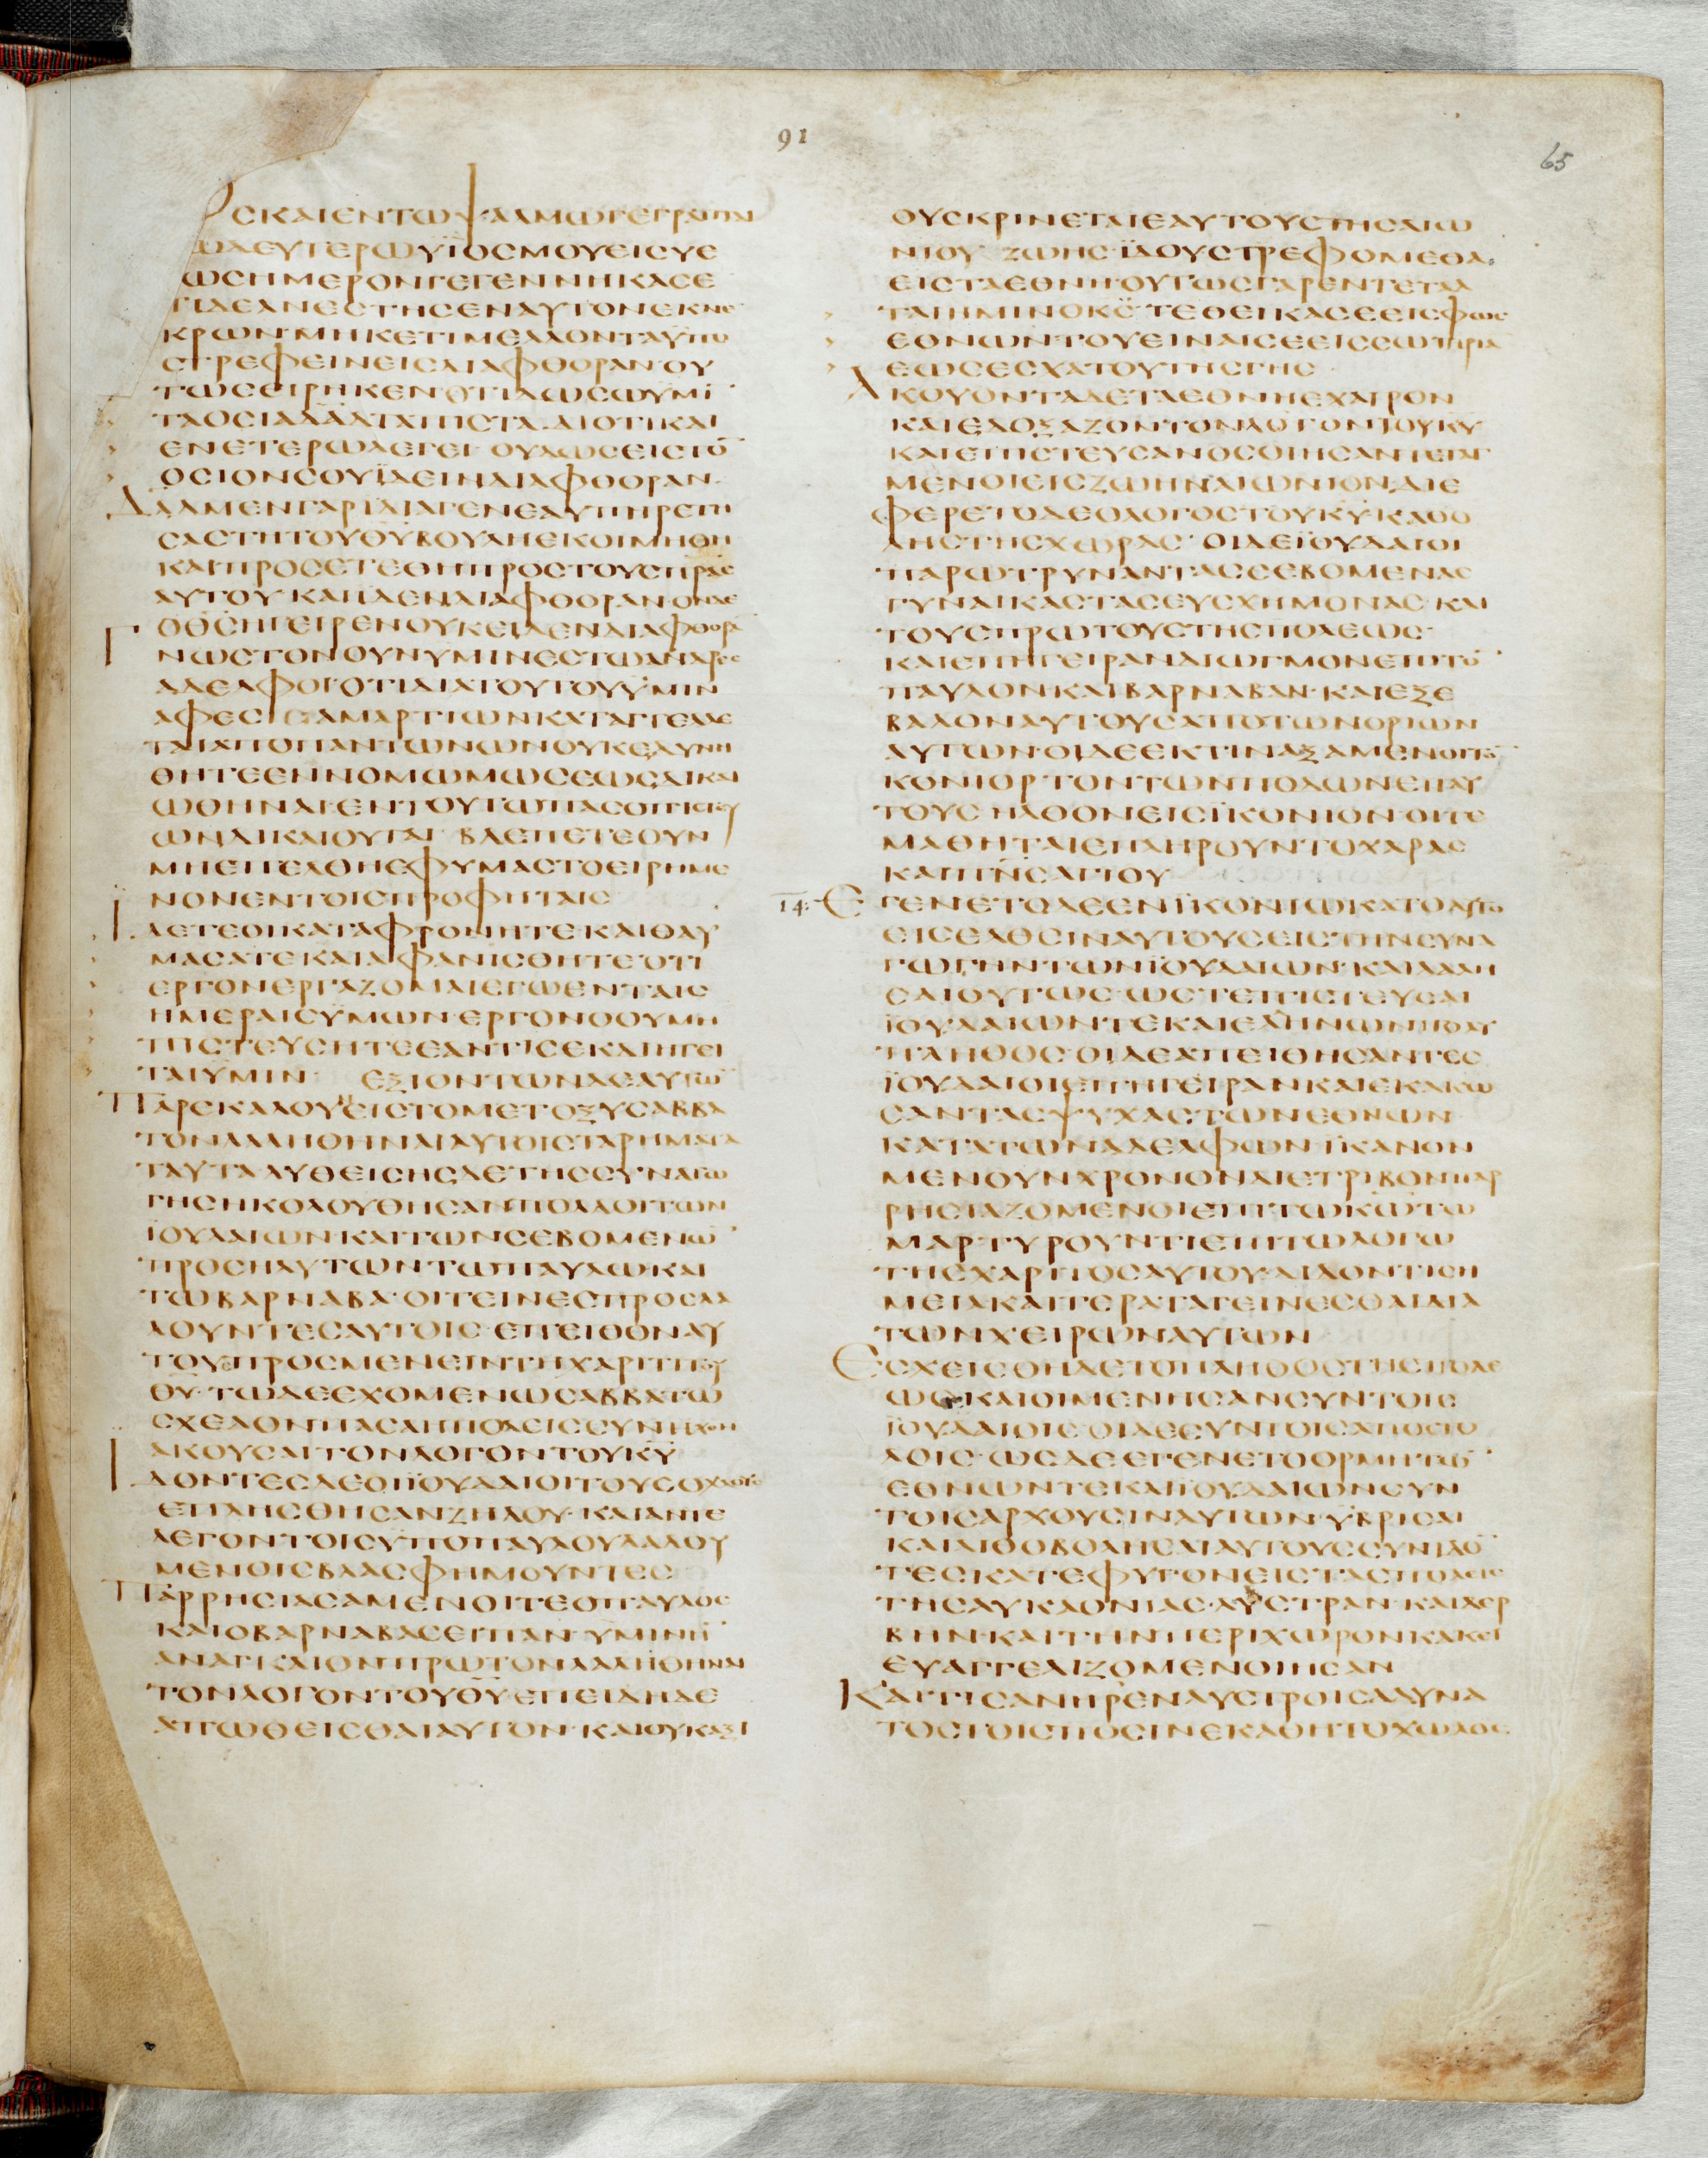 91
65
ΟϹΚΑΙΕΝΤΩΨΑΛΜΩΓΕΓΡΑΠΤΑΙ
ΩΔΕΥΤΕΡΩΥΪΟϹΜΟΥΕΙϹΥΕ
ΩϹΗΜΕΡΟΝΓΕΓΕΝΝΗΚΑϹΕ
ΤΙΔΕΑΝΕϹΤΗϹΕΝΑΥΤΟΝΕΚΝΕ
ΚΡΩΝ·ΜΗΚΕΤΙΜΕΛΛΟΝΤΑΫΠΟ
ϹΤΡΕΦΕΙΝΕΙϹΔΙΑΦΘΟΡΑΝ·ΟΥ
ΤΩϹΕΙΡΗΚΕΝΟΤΙΔΩϹΩΥΜΙ̅
ΤΑΟϹΙΑΔΑ̅ΔΤΑΠΙϹΤΑ·ΔΙΟΤΙΚΑΙ
ΕΝΕΤΕΡΩΛΕΓΕΙ· ΟΥΔΩϹΕΙϹΤΟ̅
ΟϹΙΟΝϹΟΥΪΔΕΙΝΔΙΑΦΘΟΡΑΝ·
ΔΑ̅ΔΜΕΝΓΑΡΙΔΙΑΓΕΝΕΑΥΠΗΡΕΤΗ
ϹΑϹΤΗΤΟΥΘΥΒΟΥΛΗΕΚΟΙΜΗΘΗ
ΚΑΙΠΡΟϹΕΤΕΘΗΠΡΟϹΤΟΥϹΠΡΑϹ
ΑΥΤΟΥΚΑΙΪΔΕΝΔΙΑΦΘΟΡΑΝ·ΟΝΔΕ
ΟΘϹΗΓΕΙΡΕΝΟΥΚΕΙΔΕΝΔΙΑΦΘΟΡΑ̅
ΓΝΩϹΤΟΝΟΥΝΥΜΙΝΕϹΤΩΑΝΔΡΕϹ
ΑΔΕΛΦΟΙ·ΟΤΙΔΙΑΤΟΥΤΟΥΫΜΙΝ
ΑΦΕϹΙϹΑΜΑΡΤΙΩΝΚΑΤΑΓΓΕΛΛΕ
ΤΑΙΑΠΟΠΑΝΤΩΝΩΝΟΥΚΕΔΥΝΗ
ΘΗΤΕΕΝΝΟΜΩΜΩϹΕΩϹΔΙΚΑΙ
ΩΘΗΝΑΙ·ΕΝΤΟΥΤΩΠΑϹΟΠΙϹΤΕΥ
ΩΝΔΙΚΑΙΟΥΤΑΙ· ΒΛΕΠΕΤΕΟΥΝ
ΜΗΕΠΕΛΘΗΕΦΥΜΑϹΤΟΕΙΡΗΜΕ
ΝΟΝΕΝΤΟΙϹΠΡΟΦΗΤΑΙϹ
ΪΔΕΤΕΟΙΚΑΤΑΦΡΟΝΗΤΕΚΑΙΘΑΥ
ΜΑϹΑΤΕΚΑΙΑΦΑΝΙϹΘΗΤΕ·ΟΤΙ
ΕΡΓΟΝΕΡΓΑΖΟΜΑΙΕΓΩΕΝΤΑΙϹ
ΗΜΕΡΑΙϹΫΜΩΝ·ΕΡΓΟΝΟΟΥΜΗ
ΠΙϹΤΕΥϹΗΤΕΕΑΝΤΙϹΕΚΔΙΗΓΕΙ
ΤΑΙΥΜΙΝ ΕΞΙΟΝΤΩΝΔΕΑΥΤΩ̅
ΠΑΡΕΚΑΛΟΥΝΕΙϹΤΟΜΕΤΟΞΥϹΑΒΒΑ
ΤΟΝΛΑΛΗΘΗΝΑΙΑΥΤΟΙϹΤΑΡΗΜΑΤΑ
ΤΑΥΤΑΛΥΘΕΙϹΗϹΔΕΤΗϹϹΥΝΑΓΩ
ΓΗϹΗΚΟΛΟΥΘΗϹΑΝΠΟΛΛΟΙΤΩΝ
ΪΟΥΔΑΙΩΝ·ΚΑΙΤΩΝϹΕΒΟΜΕΝΩ̅
ΠΡΟϹΗΛΥΤΩΝΤΩΠΑΥΛΩΚΑΙ
ΤΩΒΑΡΝΑΒΑ·ΟΙΤΕΙΝΕϹΠΡΟϹΛΑ
ΛΟΥΝΤΕϹΑΥΤΟΙϹ·ΕΠΕΙΘΟΝΑΥ
ΤΟΥϹΠΡΟϹΜΕΝΕΙΝΤΗΧΑΡΙΤΙΤΟΥ
ΘΥ·ΤΩΔΕΕΧΟΜΕΝΩϹΑΒΒΑΤΩ
ϹΧΕΔΟΝΠΑϹΑΗΠΟΛΕΙϹϹΥΝΗΧΘΗ
ΑΚΟΥϹΑΙΤΟΝΛΟΓΟΝΤΟΥΚΥ
ΪΔΟΝΤΕϹΔΕΟΙΪΟΥΔΑΙΟΙΤΟΥϹΟΧΛΟΥϹ
ΕΠΛΗϹΘΗϹΑΝΖΗΛΟΥ·ΚΑΙΑΝΤΕ
ΛΕΓΟΝΤΟΙϹΥΠΟΠΑΥΛΟΥΛΑΛΟΥ
ΜΕΝΟΙϹΒΛΑϹΦΗΜΟΥΝΤΕϹ
ΠΑΡΡΗϹΙΑϹΑΜΕΝΟΙΤΕΟΠΑΥΛΟϹ
ΚΑΙΟΒΑΡΝΑΒΑϹΕΙΠΑΝ·ΥΜΙΝΗ̅
ΑΝΑΓΚΑΙΟΝΠΡΩΤΟΝΛΑΛΗΘΗΝΑΙ
ΤΟΝΛΟΓΟΝΤΟΥΘΥ·ΕΠΕΙΔΗΔΕ
ΑΠΩΘΕΙϹΘΑΙΑΥΤΟΝ·ΚΑΙΟΥΚΑΞΙ
ΟΥϹΚΡΙΝΕΤΑΙΕΑΥΤΟΥϹΤΗϹΑΙΩ
ΝΙΟΥ ΖΩΗϹ·ΪΔΟΥϹΤΡΕΦΟΜΕΘΑ
ΕΙϹΤΑΕΘΝΗ·ΟΥΤΩϹΓΑΡΕΝΤΕΤΑΛ
ΤΑΙΗΜΙΝΟΚϹ ΤΕΘΕΙΚΑϹΕΕΙϹΦΩϹ
ΕΘΝΩΝΤΟΥΕΙΝΑΙϹΕΕΙϹϹΩΤΗΡΙΑ
ΕΩϹΕϹΧΑΤΟΥΤΗϹΓΗϹ
ΑΚΟΥΟΝΤΑΔΕΤΑΕΘΝΗΕΧΑΙΡΟΝ
ΚΑΙΕΔΟΞΑΖΟΝΤΟΝΛΟΓΟΝΤΟΥΚΥ
ΚΑΙΕΠΙϹΤΕΥϹΑΝΟϹΟΙΗϹΑΝΤΕΤΑΓ
ΜΕΝΟΙΕΙϹΖΩΗΝΑΙΩΝΙΟΝΔΙΕ
ΦΕΡΕΤΟΔΕΟΛΟΓΟϹΤΟΥΚΥΚΑΘΟ
ΛΗϹΤΗϹΧΩΡΑϹ· ΟΙΔΕΪΟΥΔΑΙΟΙ
ΠΑΡΩΤΡΥΝΑΝΤΑϹϹΕΒΟΜΕΝΑϹ
ΓΥΝΑΙΚΑϹΤΑϹΕΥϹΧΗΜΟΝΑϹ·ΚΑΙ
ΤΟΥϹΠΡΩΤΟΥϹΤΗϹΠΟΛΕΩϹ·
ΚΑΙΕΠΗΓΕΙΡΑΝΔΙΩΓΜΟΝΕΠΙΤΟ̅
ΠΑΥΛΟΝΚΑΙΒΑΡΝΑΒΑΝ·ΚΑΙΕΞΕ
ΒΑΛΟΝΑΥΤΟΥϹΑΠΟΤΩΝΟΡΙΩΝ
ΑΥΤΩΝ·ΟΙΔΕΕΚΤΙΝΑΞΑΜΕΝΟΙΤΟ̅
ΚΟΝΙΟΡΤΟΝΤΩΝΠΟΔΩΝΕΠΑΥ
ΤΟΥϹ·ΗΛΘΟΝΕΙϹΪΚΟΝΙΟΝ·ΟΙΤΕ
ΜΑΘΗΤΑΙΕΠΛΗΡΟΥΝΤΟΧΑΡΑϹ
ΚΑΙΠΝϹΑΓΙΟΥ
14. ΕΓΕΝΕΤΟΔΕΕΝΪΚΟΝΙΩΚΑΤΟΑΥΤΟ
ΕΙϹΕΛΘΕΙΝΑΥΤΟΥϹΕΙϹΤΗΝϹΥΝΑ
ΓΩΓΗΝΤΩΝΪΟΥΔΑΙΩΝ·ΚΑΙΛΑΛΗ
ϹΑΙΟΥΤΩϹ·ΩϹΤΕΠΙϹΤΕΥϹΑΙ
ΪΟΥΔΑΙΩΝΤΕΚΑΙΕΛΛΗΝΩΝΠΟΛΥ
ΠΛΗΘΟϹ·ΟΙΔΕΑΠΕΙΘΗϹΑΝΤΕϹ
ΪΟΥΔΑΙΟΙΕΠΗΓΕΙΡΑΝΚΑΙΕΚΑΚΩ
ϹΑΝΤΑϹΨΥΧΑϹΤΩΝΕΘΝΩΝ
ΚΑΤΑΤΩΝΑΔΕΛΦΩΝΪΚΑΝΟΝ
ΜΕΝΟΥΝΧΡΟΝΟΝΔΙΕΤΡΙΒΟΝΠΑΡ
ΡΗϹΙΑΖΟΜΕΝΟΙΕΠΙΤΩΚΩΤΩ
ΜΑΡΤΥΡΟΥΝΤΙΕΠΙΤΩΛΟΓΩ
ΤΗϹΧΑΡΙΤΟϹΑΥΤΟΥ·ΔΙΔΟΝΤΙϹΗ
ΜΕΙΑΚΑΙΤΕΡΑΤΑΓΕΙΝΕϹΘΑΙΔΙΑ
ΤΩΝΧΕΙΡΩΝΑΥΤΩΝ
ΕϹΧΕΙϹΘΗΔΕΤΟΠΛΗΘΟϹΤΗϹΠΟΛΕ
ΩϹΚΑΙΟΙΜΕΝΗϹΑΝϹΥΝΤΟΙϹ
ΪΟΥΔΑΙΟΙϹ·ΟΙΔΕϹΥΝΤΟΙϹΑΠΟϹΤΟ
ΛΟΙϹ·ΩϹΔΕΕΓΕΝΕΤΟΟΡΜΗΤΩ̅
ΕΘΝΩΝΤΕΚΑΙΪΟΥΔΑΙΩΝϹΥΝ
ΤΟΙϹΑΡΧΟΥϹΙΝΑΥΤΩΝ·ΫΒΡΙϹΑΙ
ΚΑΙΛΙΘΟΒΟΛΗϹΑΙΑΥΤΟΥϹϹΥΝΙΔΟ̅
ΤΕϹΚΑΤΕΦΥΓΟΝΕΙϹΤΑϹΠΟΛΕΙϹ
ΤΗϹΛΥΚΑΟΝΙΑϹ·ΛΥϹΤΡΑΝ·ΚΑΙΔΕΡ
ΒΗΝ·ΚΑΙΤΗΝΠΕΡΙΧΩΡΟΝΚΑΚΕΙ
ΕΥΑΓΓΕΛΙΖΟΜΕΝΟΙΗϹΑΝ
ΚΑΙΤΙϹΑΝΗΡΕΝΛΥϹΤΡΟΙϹΑΔΥΝΑ
ΤΟϹΤΟΙϹΠΟϹΙΝΕΚΑΘΗΤΟΧΩΛΟϹ